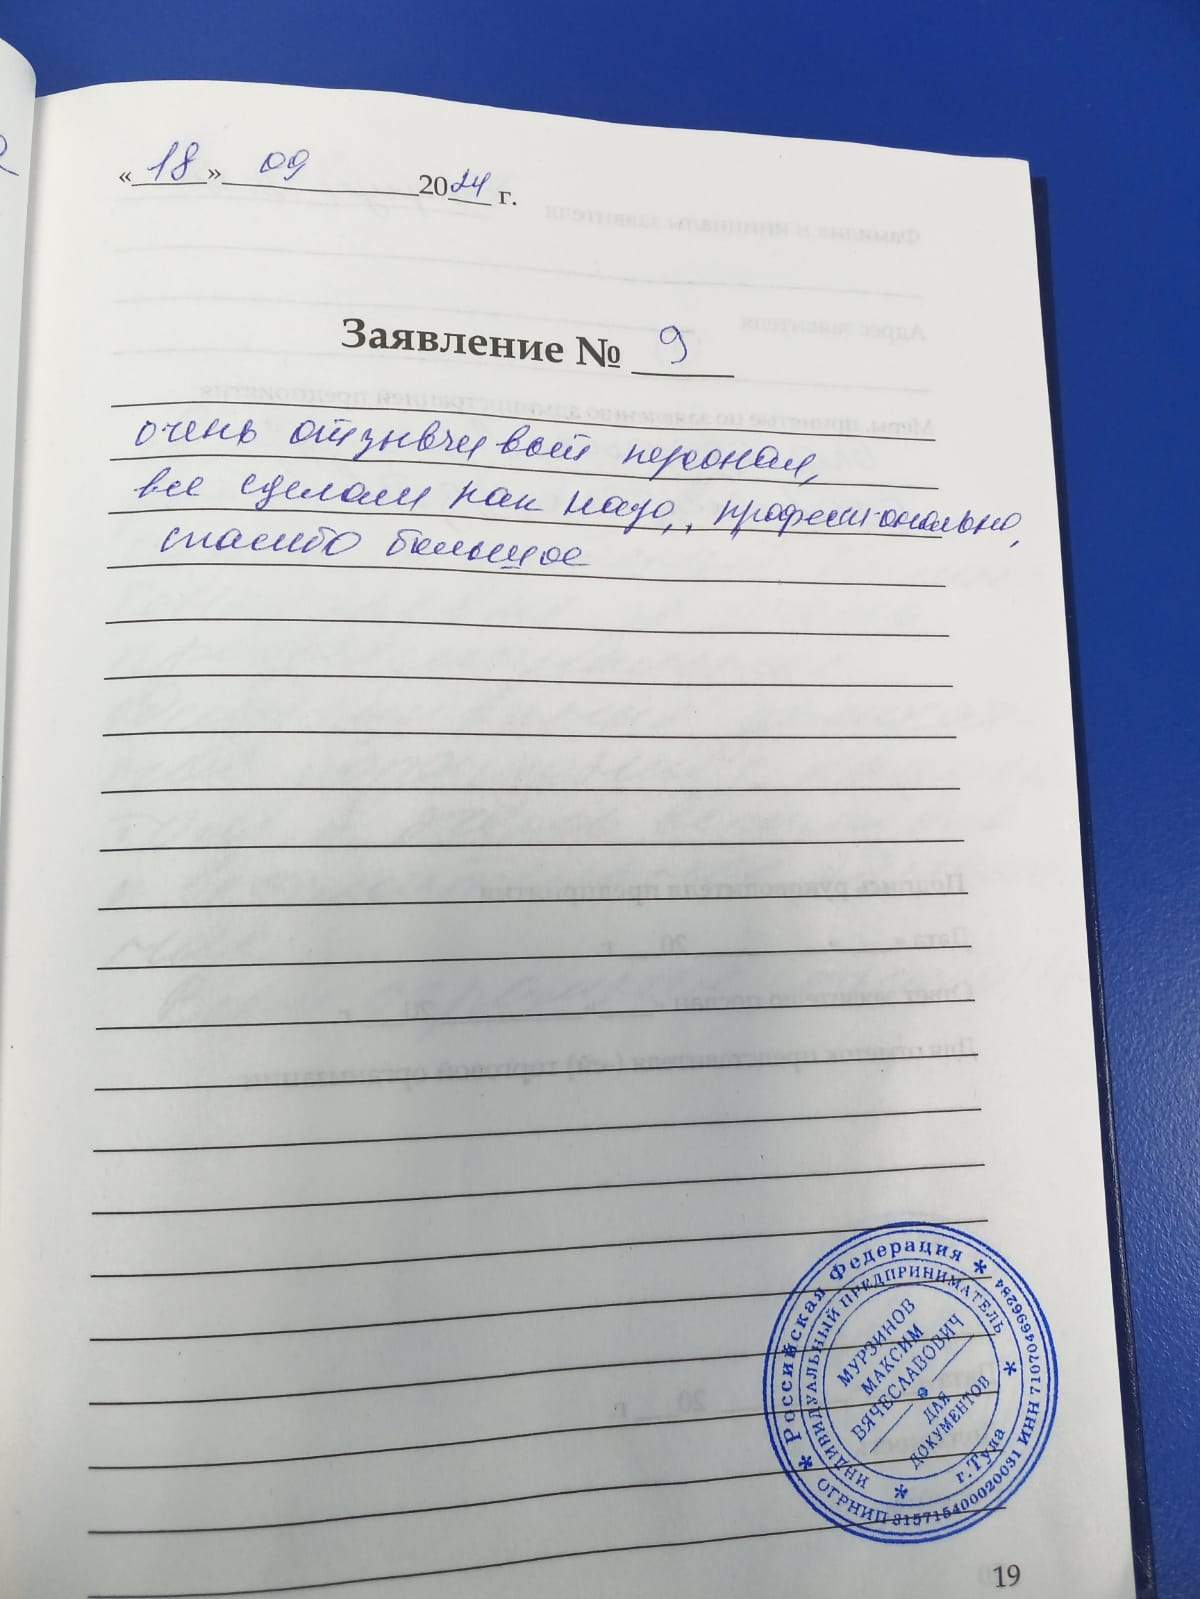 «18» 09 2024 г.
Заявление № 9
очень отзывчивый персонал,
все сделали как надо, профессионально,
спасибо большое
* Российская Федерация *
ИНДИВИДУАЛЬНЫЙ ПРЕДПРИНИМАТЕЛЬ
МУРЗИНОВ
МАКСИМ
ВЯЧЕСЛАВОВИЧ
ДЛЯ
ДОКУМЕНТОВ
г.Тула
ОГРНИП 315715400020031 ИНН 710704696284
19